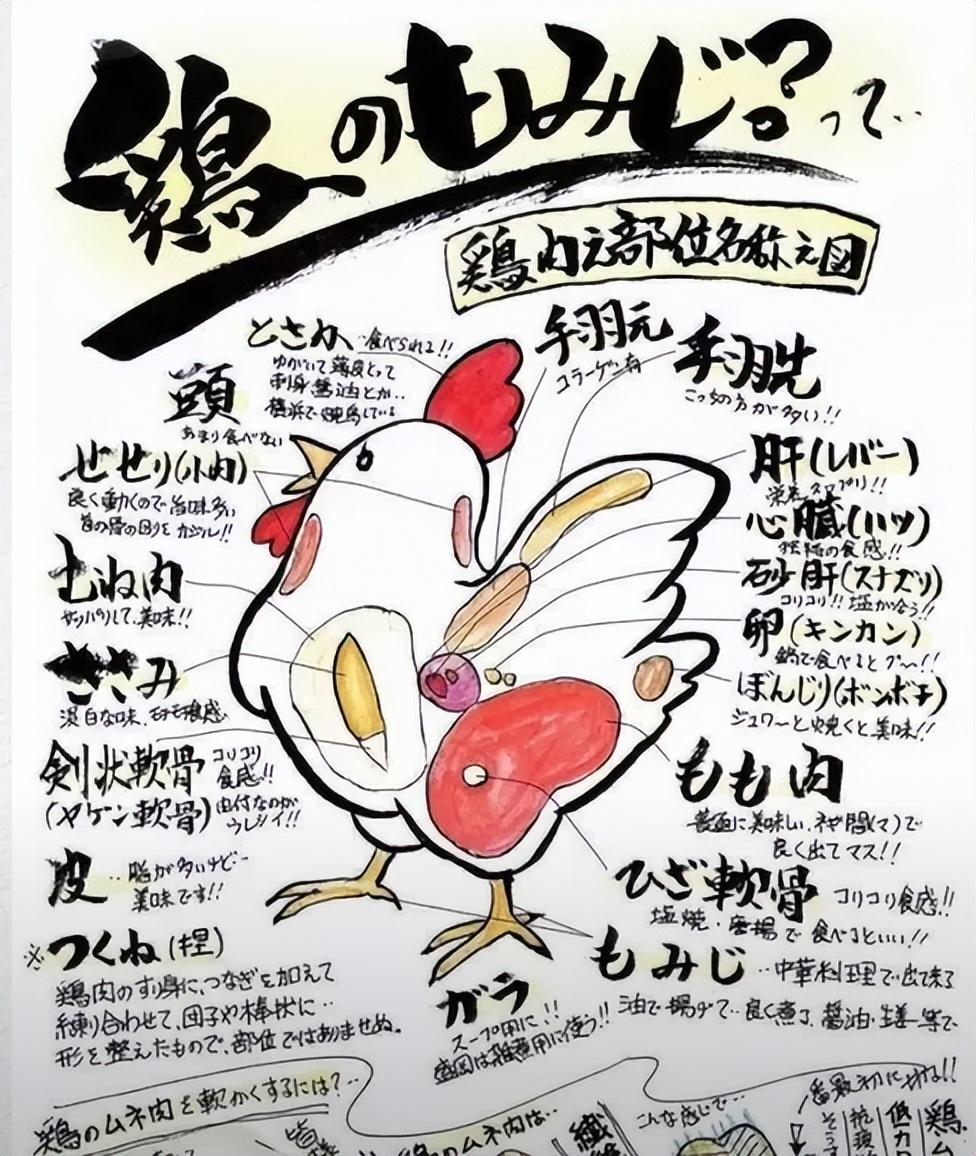 鶏のもみじ?って‥
鶏肉之部位名称之図
とさか‥食べられる!!
ゆがいて薄皮とって
刺身醤油とか‥
横浜で焼鳥している
手羽元
コラーゲン有
手羽先
こっちの方が多い!!
頭
あまり食べない
せせり(小肉)
良く動くので旨味多い
首の骨の回りを
むね肉
サッパリして、美味!!
ささみ
淡白な味、
剣状軟骨
(ヤゲン軟骨)
コリコリ
食感!!
肉付なのが
ウレシイ!!
皮‥脂が多いけど‥
美味です!!
肝(レバー)
心臓(ハツ)
独特の食感!!
砂肝(スナズリ)
コリコリ!!塩が合う!!
卵(キンカン)
鍋で食べると
ぼんじり(ボンボチ)
ジュワ〜と焼くと美味!!
もも肉
普通に美味しい、
良く出てマス!!
ひざ軟骨 コリコリ食感!!
塩焼・唐揚で食べるといい!!
もみじ‥中華料理で出て来る
油で揚げて‥良く煮る、醤油・生姜等で
※つくね(捏)
鶏肉のすり身に、つなぎを加えて
練り合わせて、団子や棒状に‥
形を整えたもので、部位ではありませぬ。
ガラ
スープ用に!!
盛岡は雑煮用に使う!!
鶏のムネ肉を軟かくするには?‥
のムネ肉は‥
繊維
こんな感じで‥
一番最初に切る!!
低カロ
鶏ム